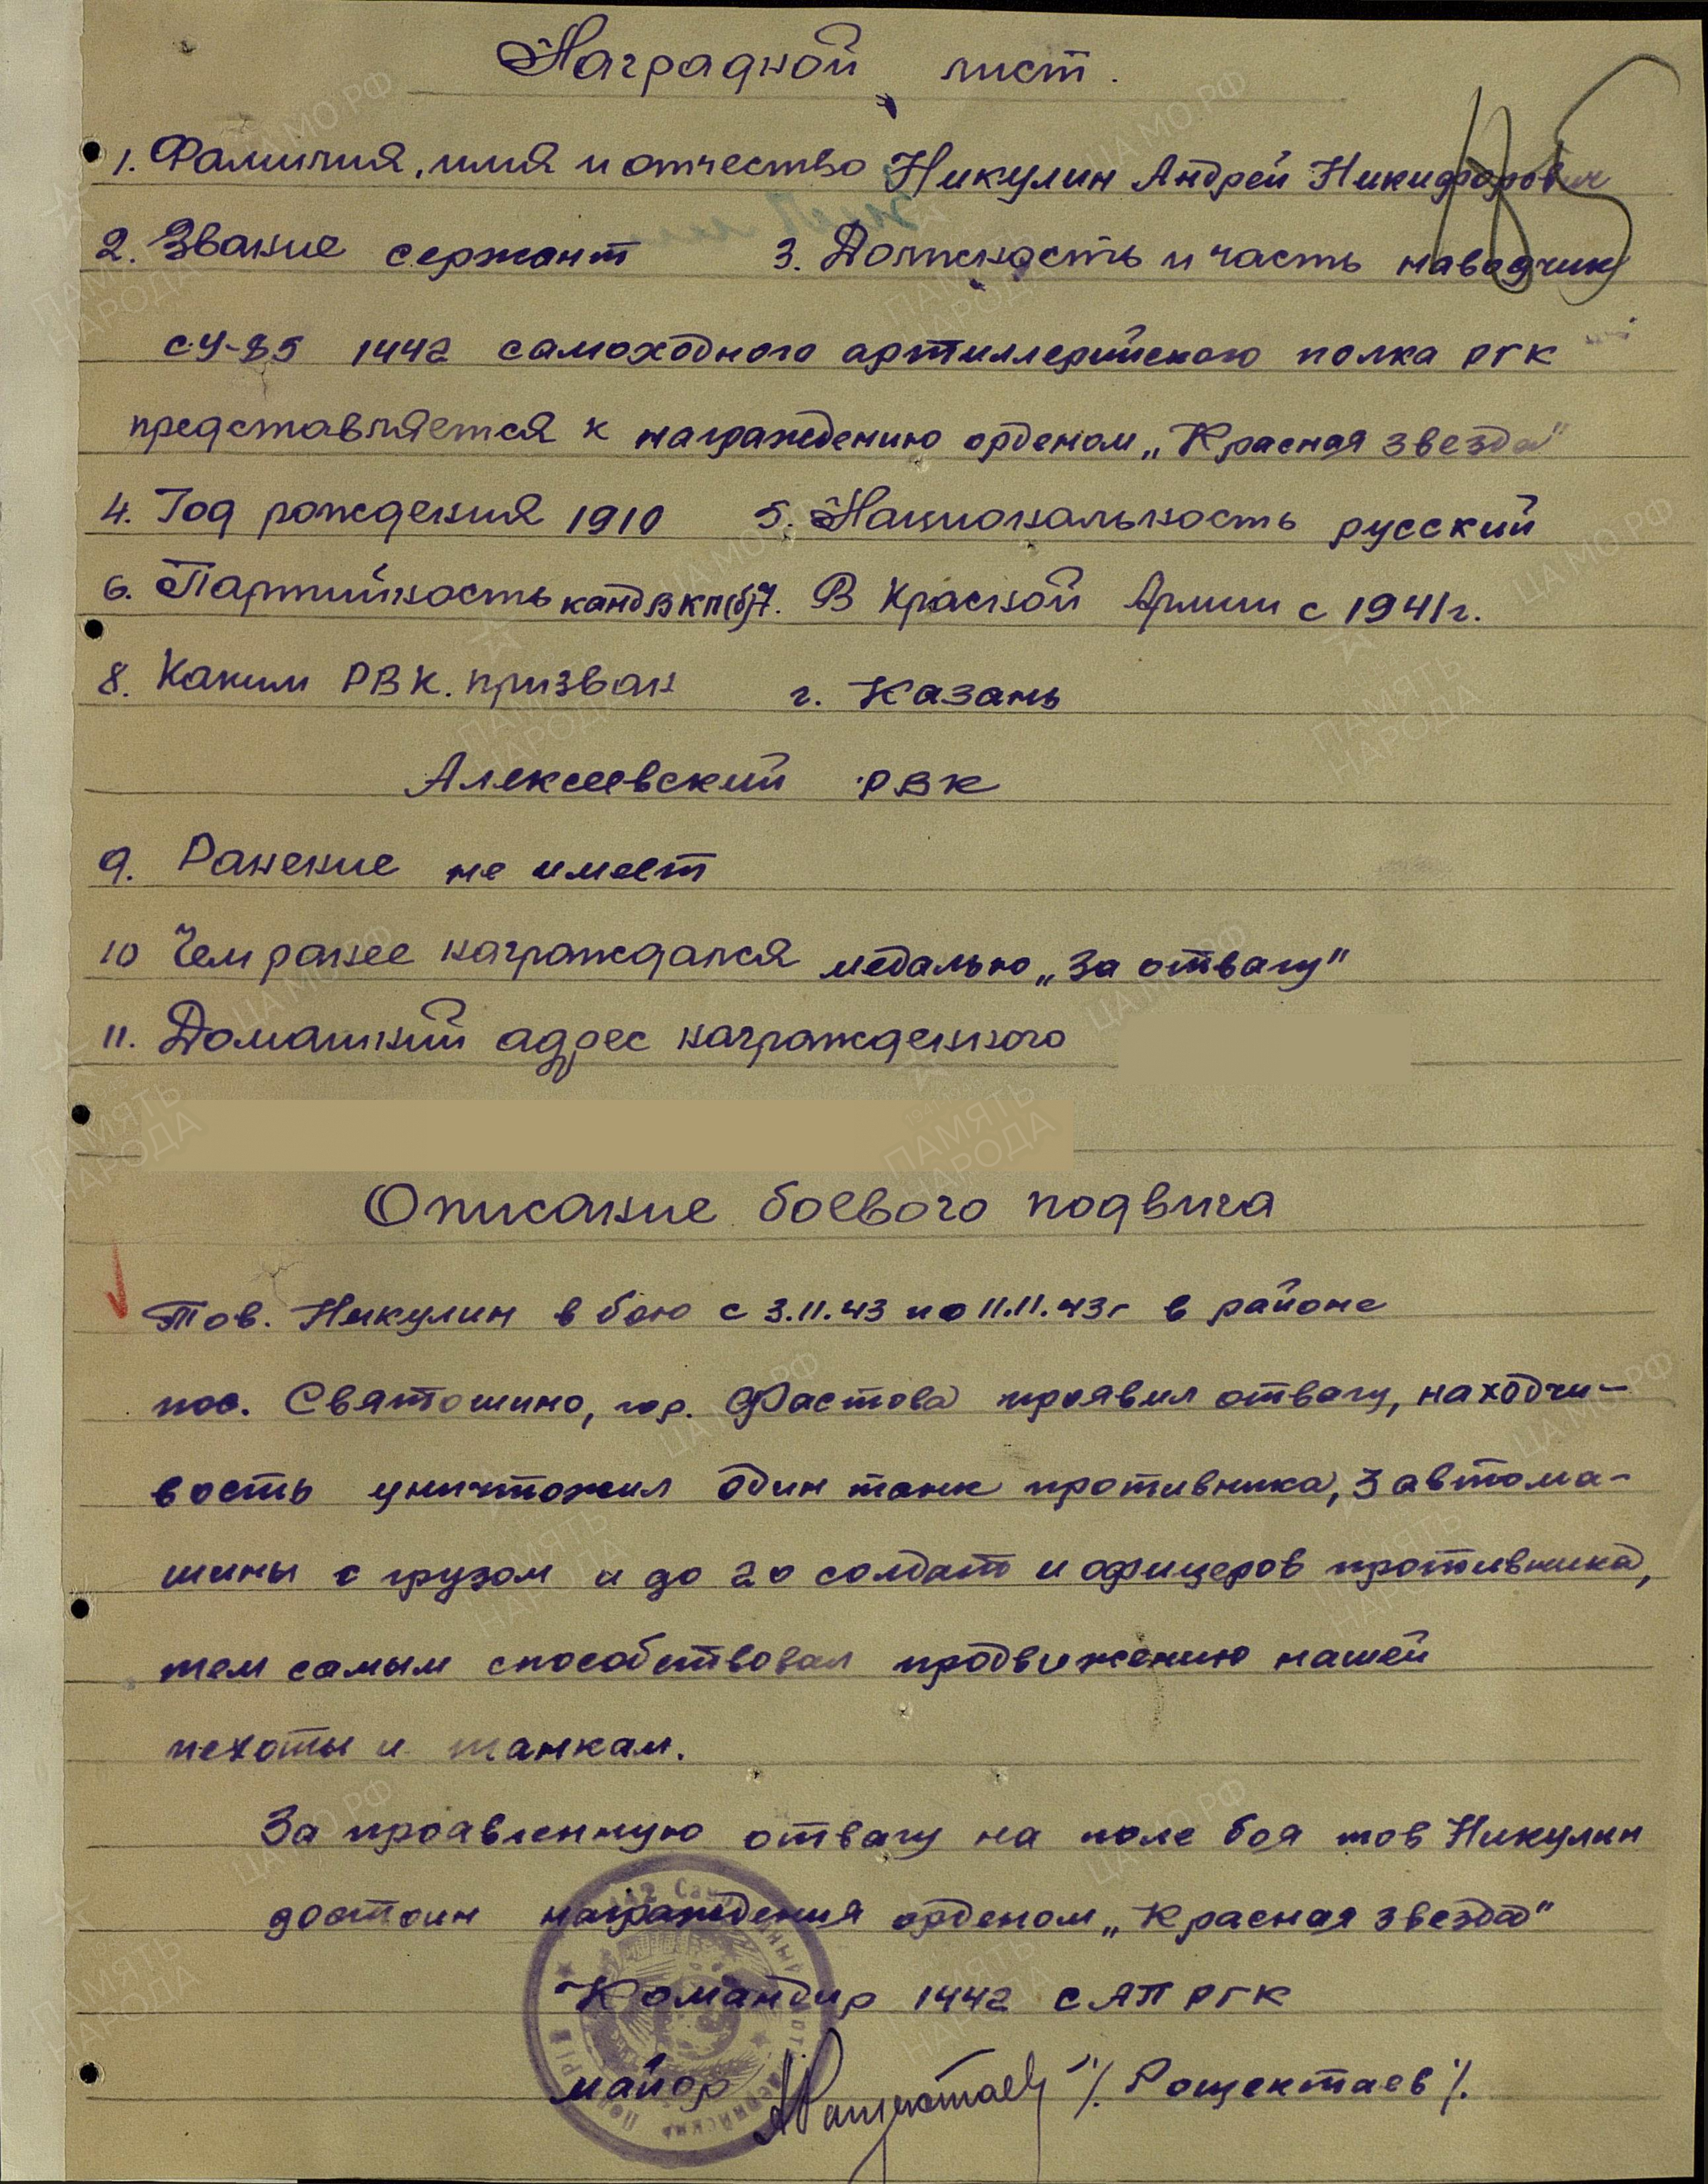 Наградной лист.
1. Фамилия, имя и отчество Никулин Андрей Никифорович
2. Звание сержант 3. Должность и часть наводчик
СУ-85 1442 самоходного артиллерийского полка РГК
представляется к награждению орденом „Красная звезда"
4. Год рождения 1910 5. Национальность русский
6. Партийность канд ВКП(б) 7. В Красной Армии с 1941 г.
8. Каким РВК. призван г. Казань
Алексеевский РВК
9. Ранение не имеет
10 Чем ранее награждался медалью „За отвагу"
11. Домашний адрес награжденного
Описание боевого подвига
Тов. Никулин в бою с 3.11.43 по 11.11.43г в районе
пос. Святошино, гор. Фастова проявил отвагу, находчи-
вость уничтожил один танк противника, 3 автома-
шины с грузом и до 20 солдат и офицеров противника,
тем самым способствовал продвижению нашей
пехоты и танкам.
За проявленную отвагу на поле боя тов Никулин
достоин награждения орденом „Красная звезда"
Командир 1442 САП РГК
майор /Рощектаев/.
ПАМЯТЬ НАРОДА
ЦАМО.РФ